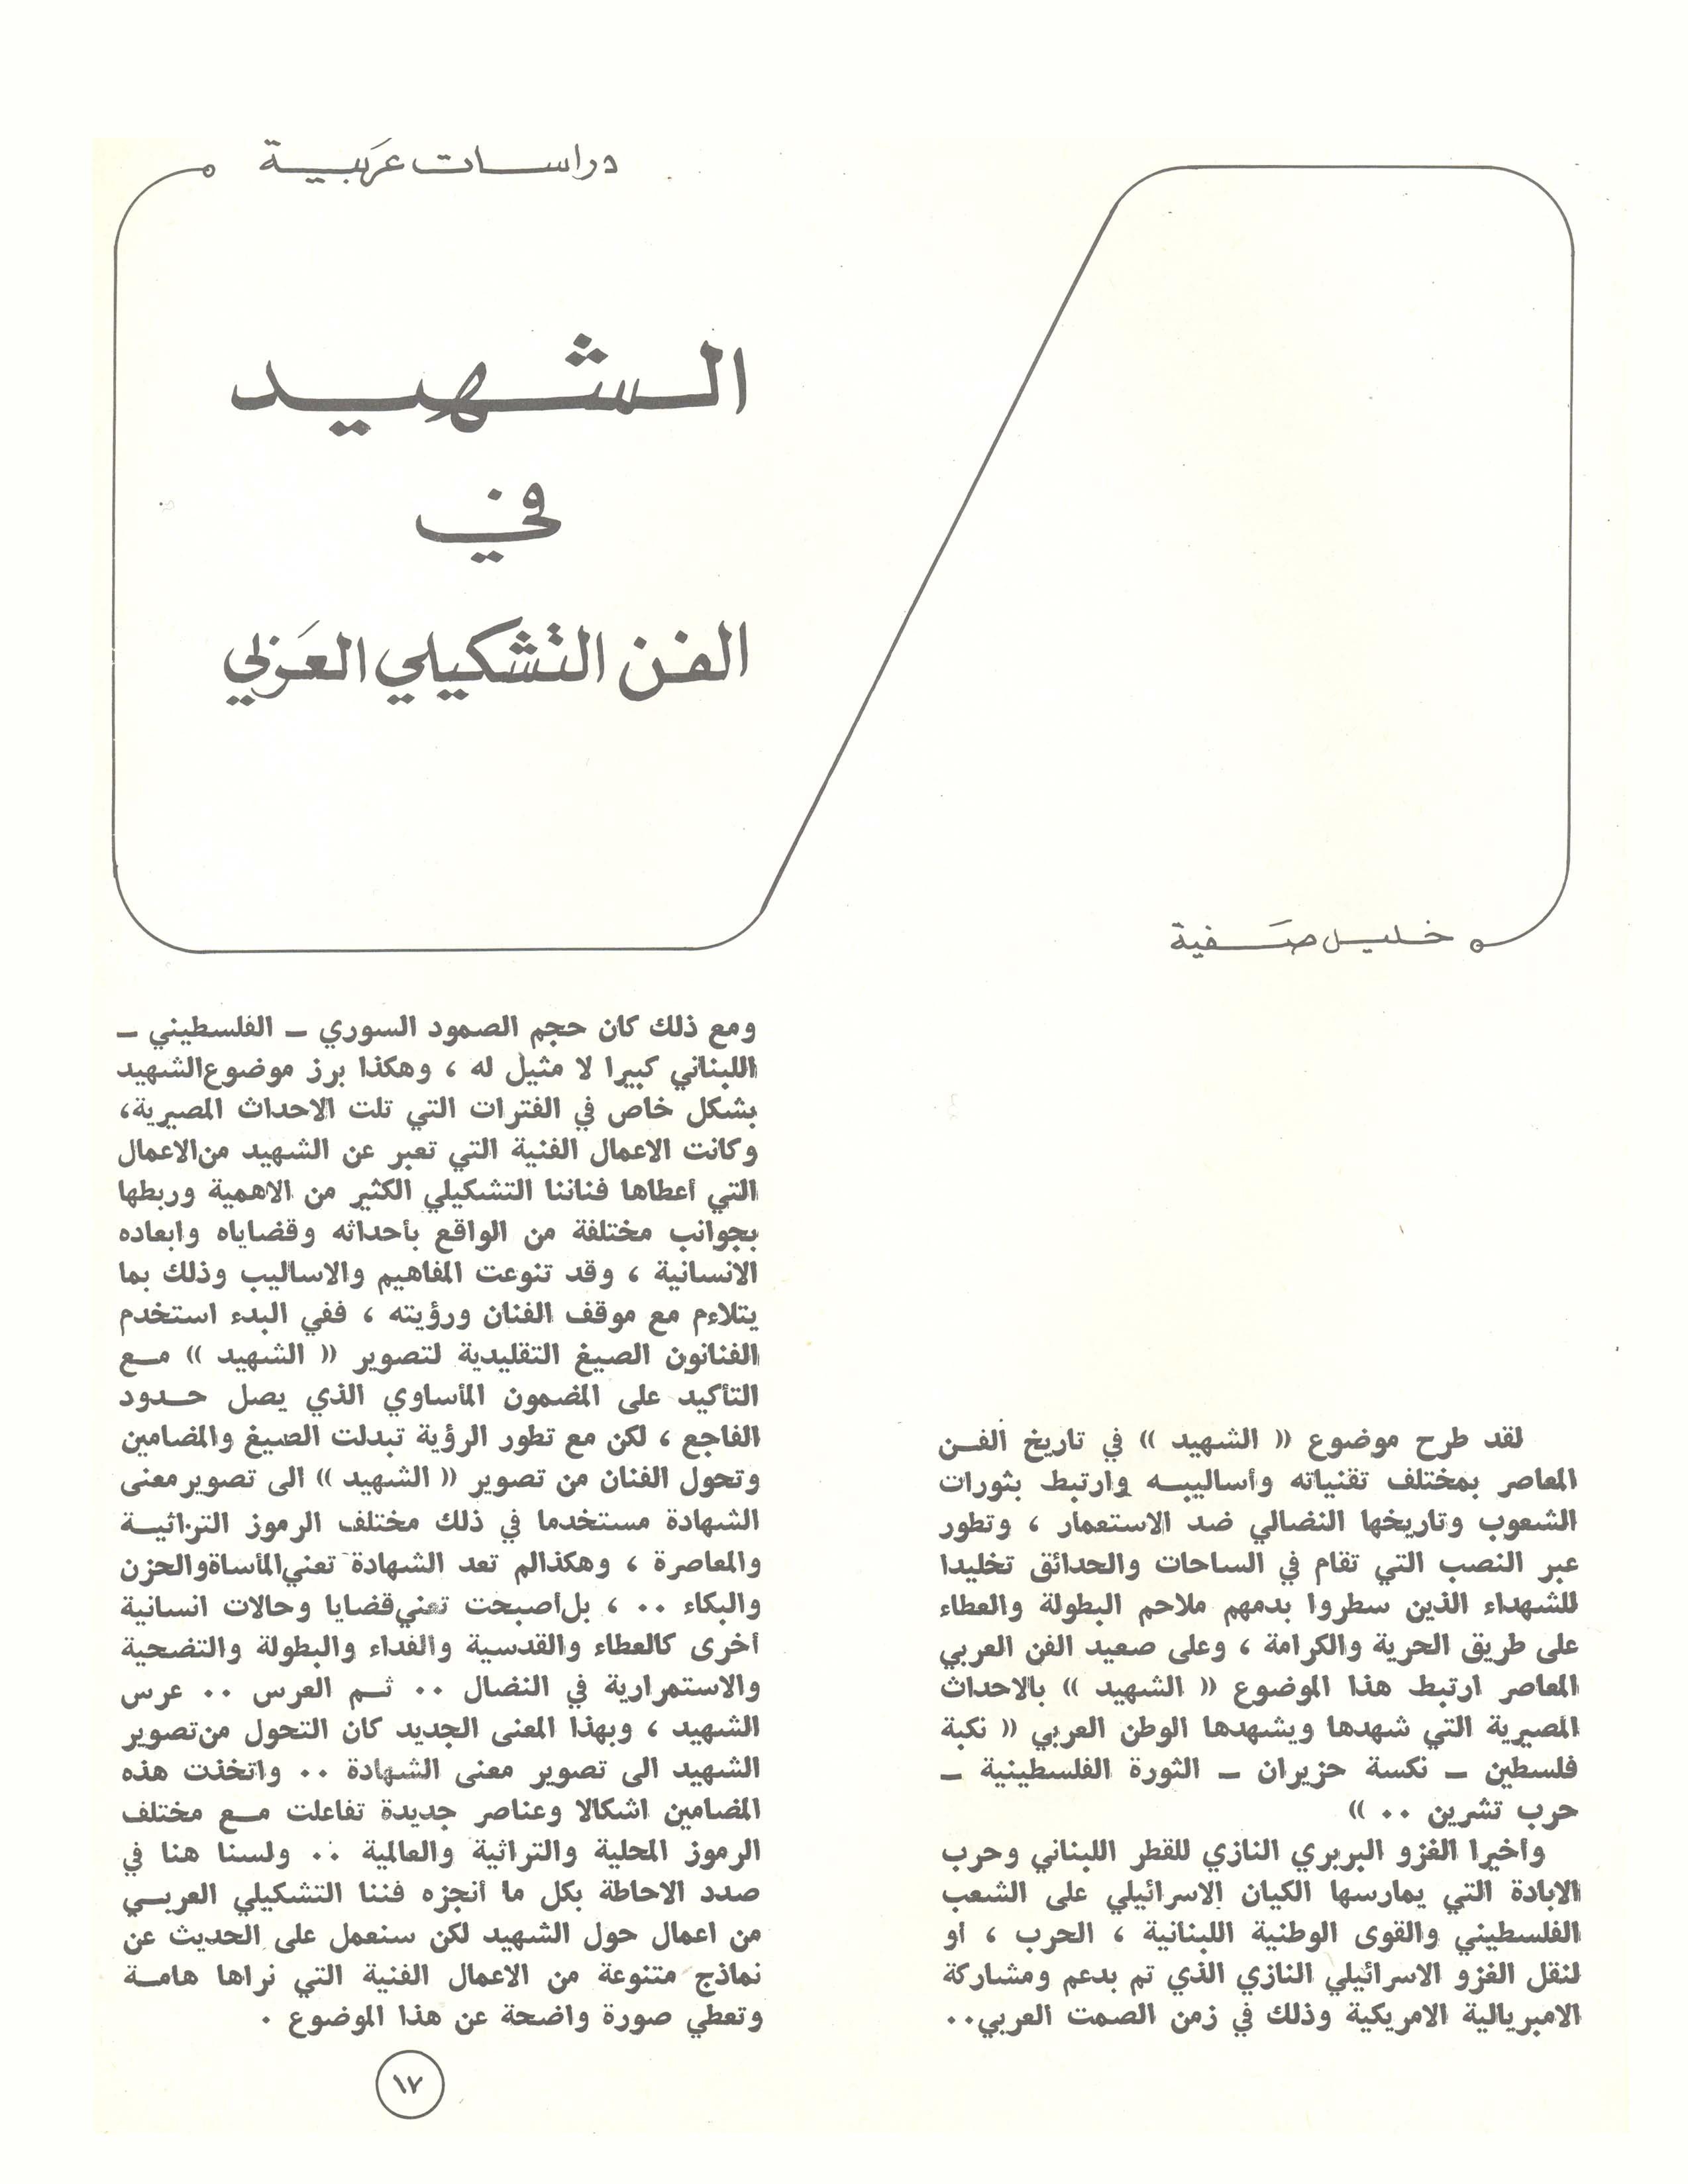 دراسات عربية
الشهيد
في
الفن التشكيلي العربي
خليل صفية
لقد طرح موضوع (( الشهيد )) في تاريخ الفن
المعاصر بمختلف تقنياته وأساليبه وارتبط بثورات
الشعوب وتاريخها النضالي ضد الاستعمار ، وتطور
عبر النصب التي تقام في الساحات والحدائق تخليدا
للشهداء الذين سطروا بدمهم ملاحم البطولة والعطاء
على طريق الحرية والكرامة ، وعلى صعيد الفن العربي
المعاصر ارتبط هذا الموضوع (( الشهيد )) بالاحداث
المصيرية التي شهدها ويشهدها الوطن العربي (( نكبة
فلسطين ــ نكسة حزيران ــ الثورة الفلسطينية ــ
حرب تشرين .. ))
وأخيرا الغزو البربري النازي للقطر اللبناني وحرب
الابادة التي يمارسها الكيان الاسرائيلي على الشعب
الفلسطيني والقوى الوطنية اللبنانية ، الحرب ، او
لنقل الغزو الاسرائيلي النازي الذي تم بدعم ومشاركة
الامبريالية الامريكية وذلك في زمن الصمت العربي..
ومع ذلك كان حجم الصمود السوري ــ الفلسطيني ــ
اللبناني كبيرا لا مثيل له ، وهكذا برز موضوع الشهيد
بشكل خاص في الفترات التي تلت الاحداث المصيرية،
وكانت الاعمال الفنية التي تعبر عن الشهيد من الاعمال
التي أعطاها فناننا التشكيلي الكثير من الاهمية وربطها
بجوانب مختلفة من الواقع بأحداثه وقضاياه وابعاده
الانسانية ، وقد تنوعت المفاهيم والاساليب وذلك بما
يتلاءم مع موقف الفنان ورؤيته ، ففي البدء استخدم
الفنانون الصيغ التقليدية لتصوير (( الشهيد )) مع
التأكيد على المضمون المأساوي الذي يصل حدود
الفاجع ، لكن مع تطور الرؤية تبدلت الصيغ والمضامين
وتحول الفنان من تصوير (( الشهيد )) الى تصوير معنى
الشهادة مستخدما في ذلك مختلف الرموز التراثية
والمعاصرة ، وهكذا لم تعد الشهادة تعني المأساة والحزن
والبكاء .. ، بل أصبحت تعني قضايا وحالات انسانية
أخرى كالعطاء والقدسية والفداء والبطولة والتضحية
والاستمرارية في النضال .. ثم العرس .. عرس
الشهيد ، وبهذا المعنى الجديد كان التحول من تصوير
الشهيد الى تصوير معنى الشهادة .. واتخذت هذه
المضامين اشكالا وعناصر جديدة تفاعلت مع مختلف
الرموز المحلية والتراثية والعالمية .. ولسنا هنا في
صدد الاحاطة بكل ما أنجزه فننا التشكيلي العربي
من اعمال حول الشهيد لكن سنعمل على الحديث عن
نماذج متنوعة من الاعمال الفنية التي نراها هامة
وتعطي صورة واضحة عن هذا الموضوع .
١٧